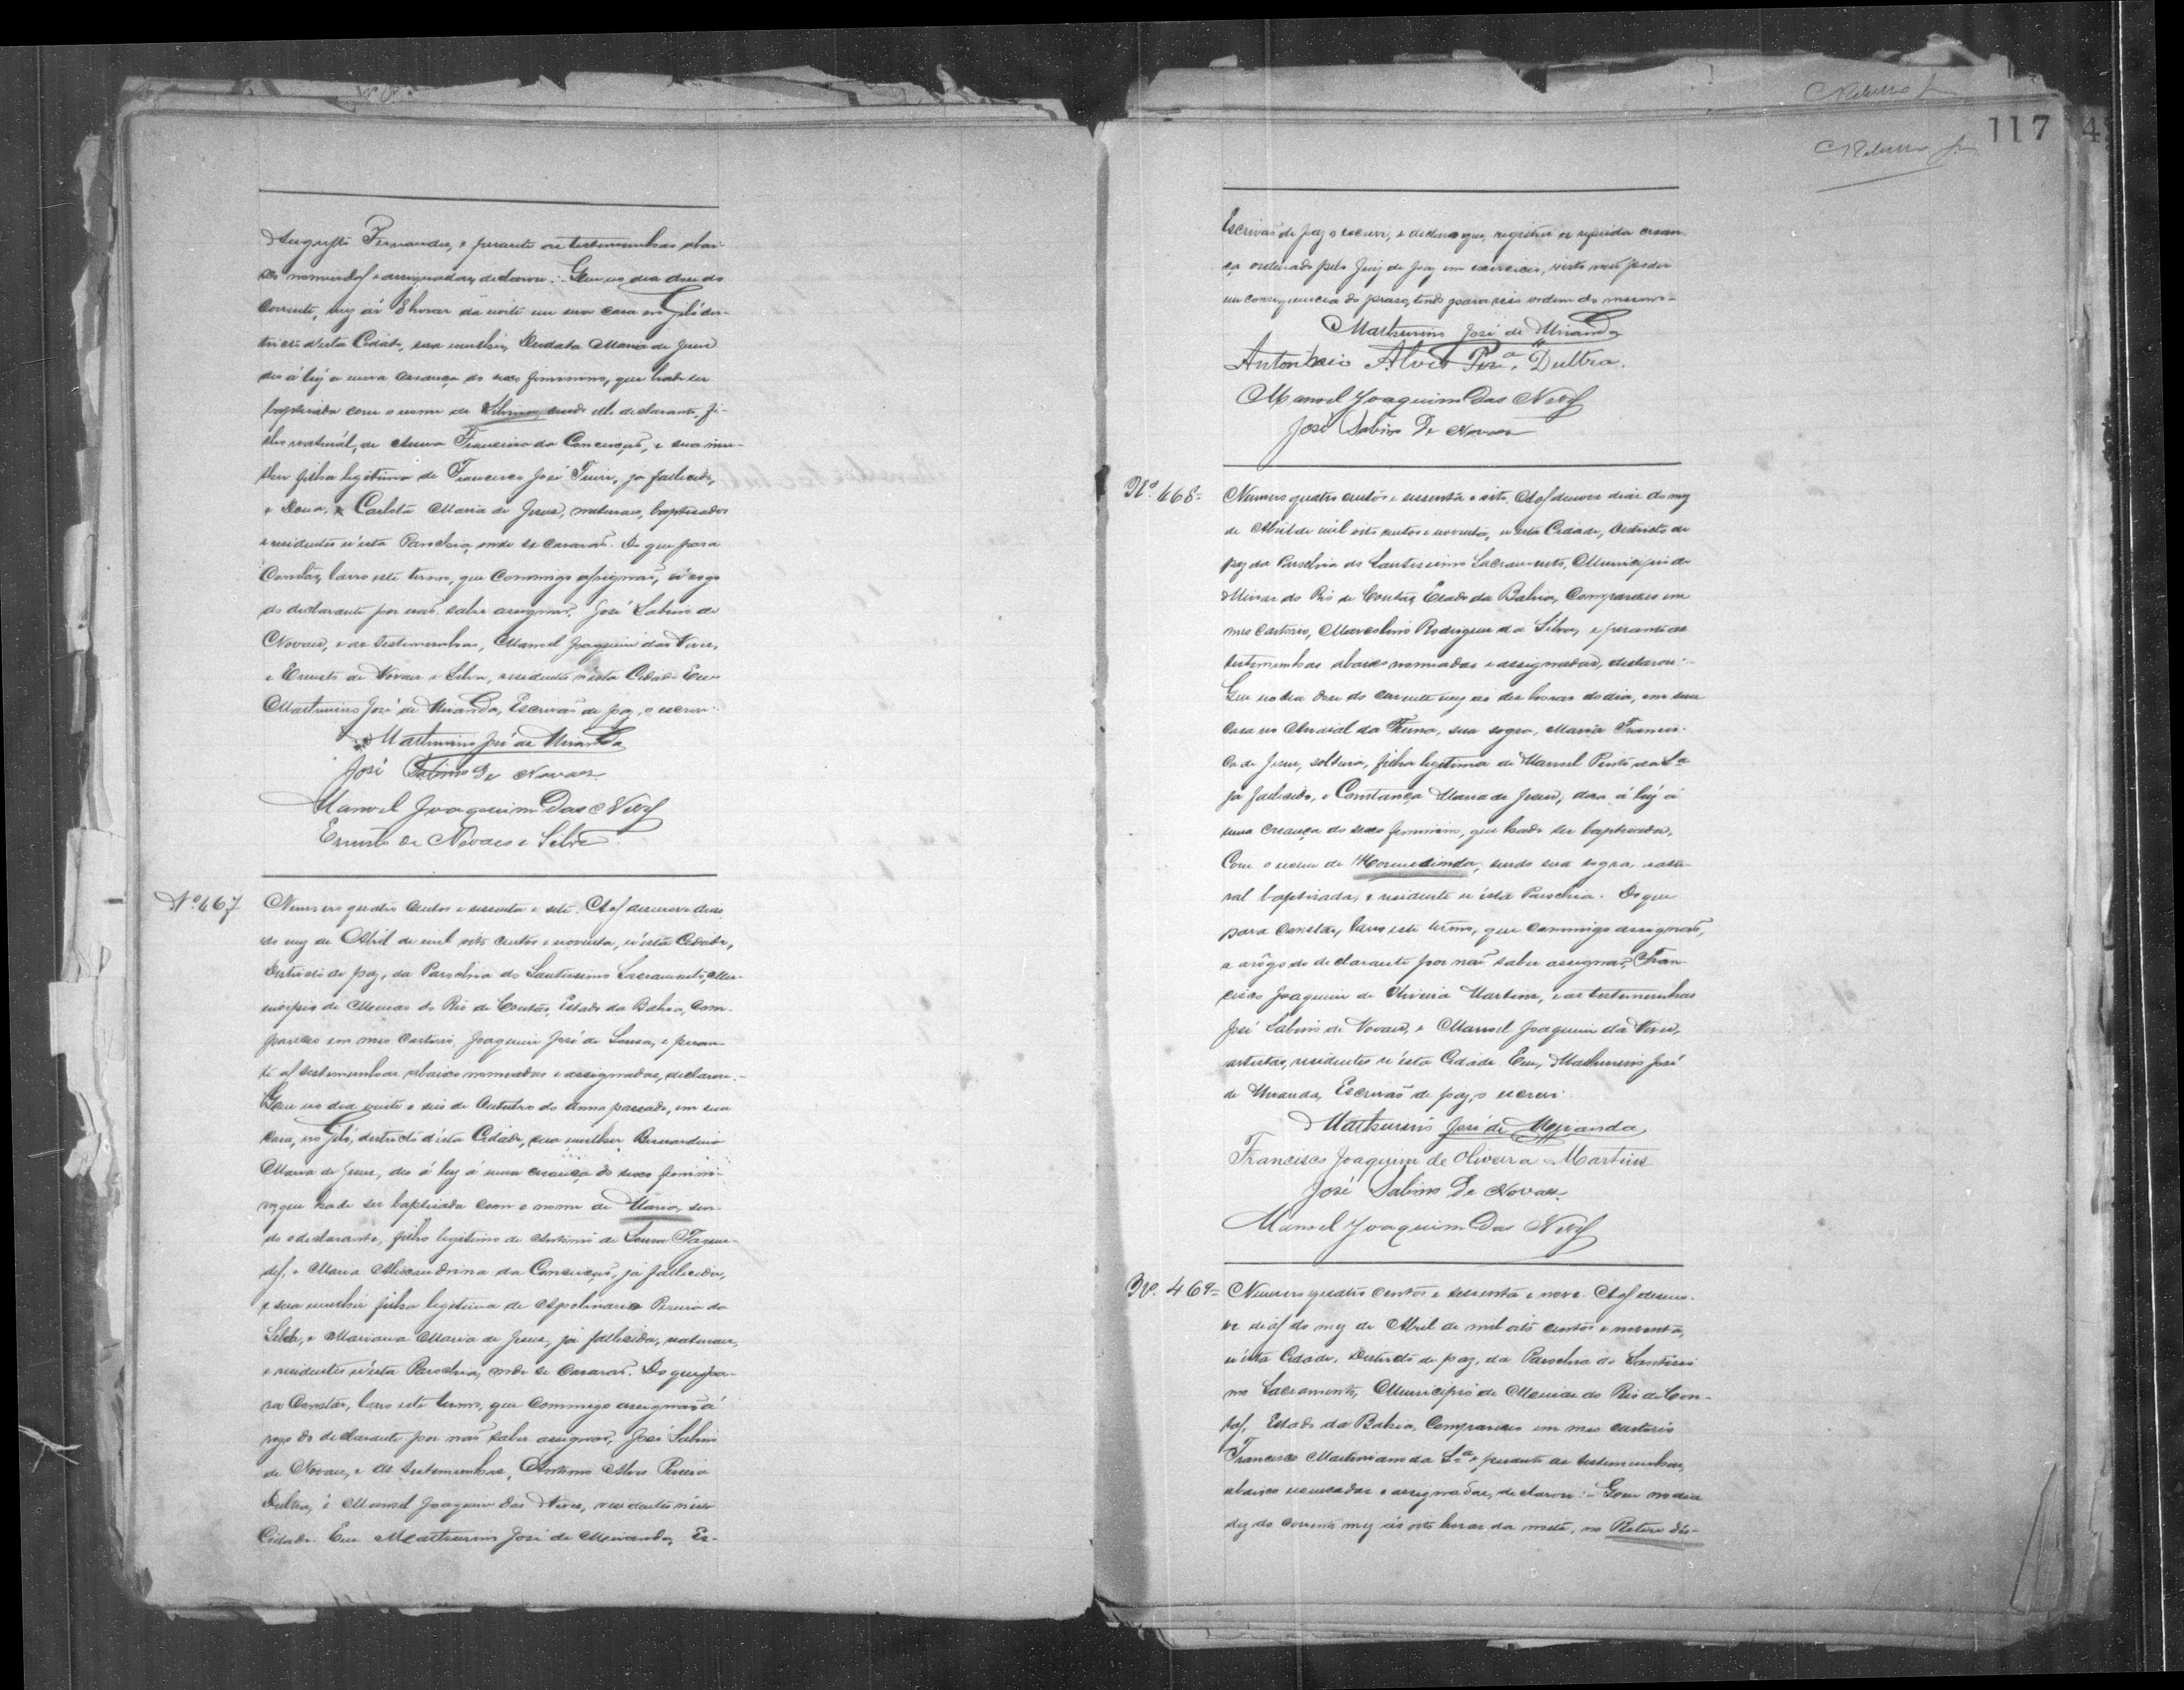 Augusto Fernandes, e perante as testemunhas abai-
xo nomeadas e assignadas, declarou: Que no dia doze do
corrente mez ás 8 horas da noite em sua casa no Giló dis-
tricto d'esta Cidade, sua mulher, Deodata Maria de Jesus
deo á luz a uma creança do sexo feminino, que hade ser
baptisada com o nome de Silvina, sendo elle declarante, fi-
lho natural, de Anna Francisca da Conceição, e sua mu-
lher filha legitima de Francisco José, ja fallecido,
e Dona, Carlota Maria de Jesus, naturaes, baptisados
e residentes n'esta Parochia, onde se casarão. Do que para
Constar, lavro este termo, que commigo assignão, á rogo
do declarante por não saber assignar, José Sabino de
Novaes, e as testemunhas, Manoel Joaquim das Neves,
e Ernesto de Novaes e Silva, residentes n'esta Cidade Eu
Mathurino José de Miranda, Escrivão de paz, o escrevi.
Mathurino José de Miranda
José Sabino De Novaes
Manoel Joaquim Das Neves
Ernesto de Novaes e Silva
Nº 467
Numero quatro centos e sessenta e sete. Aos desenove dias
do mez de Abril de mil oito centos e noventa, n'esta Cidade,
Districto de paz, da Parochia do Santissimo Sacramento, Mu-
nicipio de Minas do Rio de Contas, Estado da Bahia, com-
pareceo em meo Cartorio Joaquim José de Sousa, e peran-
te as testemunhas abaixo nomeadas e assignadas, declarou:
Que no dia vinte e seis de Outubro do anno passado, em sua
casa, no Giló, districto d'esta Cidade, sua mulher Bernardina
Maria de Jesus, deo á luz á uma creança do sexo femini-
no, que hade ser baptisada com o nome de Maria, sen-
do o declarante, filho legitimo de Antonio de Sousa
e Maria Alexandrina da Conceição, já fallecida,
e sua mulher filha legitima de Apolinario Pereira da
Silva, e Marianna Maria de Jesus, já fallecida, naturaes,
e residentes n'esta Parochia, onde se casarão. Do que pa-
ra Constar, lavro este termo, que commigo assignão á
rogo do declarante por não saber assignar, José Sabino
de Novaes, e as testemunhas, Antonio Alves Pereira
Dultra, e Manoel Joaquim das Neves, residentes n'esta
Cidade. Eu Mathurino José de Miranda, Es-
117
4
Escrivão de paz o escrevi, e declaro que, registrei a referida crean-
ça ordenado pelo Juiz de paz em exercicio, visto não poder
em consequencia do praso, tendo para isso ordem do mesmo-
Mathurino José de Miranda
Antonio Alves Perª. Dultra.
Manoel Joaquim Das Neves
José Sabino De Novaes
Nº. 468=
Numero quatro centos e sessenta e oito. Aos desenove dias do mez
de Abril de mil oito centos e noventa, n'esta Cidade, Districto de
paz da Parochia do Santissimo Sacramento, Municipio de
Minas do Rio de Contas, Estado da Bahia, Compareceo em
meo Cartorio, Marcolino Rodrigues da Silva, e perante as
testemunhas abaixo nomeadas e assignadas, declarou:
Que no dia doze do corrente mez as dez horas do dia, em sua
Casa no Arraial da Furna, sua sogra, Maria Francis-
ca de Jesus, solteira, filha legitima de Manoel Pinto da Sª
ja fallecido, e Constança Maria de Jesus, dera á luz á
uma creança do sexo feminino, que hade ser baptisada,
Com o nome de Hormesinda, sendo sua sogra natu-
ral baptisada, e residente n'esta Parochia. Do que
para Constar, lavro este termo, que commigo assignão,
a arôgo do declarante por não saber assignar, Fran-
cisco Joaquim de Oliveira Martins, e as testemunhas
José Sabino de Novaes, e Manoel Joaquim das Neves,
artistas, residentes n'esta Cidade Eu, Mathurino José
de Miranda, Escrivão de paz, o escrevi.
Mathurino José de Miranda,
Francisco Joaquim de Oliveira Martins
José Sabino De Novaes.
Manoel Joaquim Das Neves
Nº. 469=
Numero quatro centos e sessenta e nove. Aos deseno-
ve dias do mez de Abril de mil oito centos e noventa,
n'esta Cidade, Districto de paz, da Parochia do Santissi-
mo Sacramento, Municipio de Minas do Rio de Con-
tas, Estado da Bahia, Compareceo em meo cartorio
Francisco Martiniano da Sª. e perante as testemunhas,
abaixo nomeadas e assignadas, declarou: Que no dia
dez do corrente mez ás oito horas da noite, no Retiro dis-